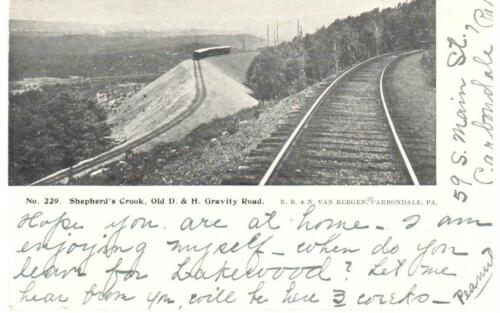 No. 229. Shepherd's Crook, Old D. & H. Gravity Road.
R. B. & N. VAN BERGEN, CARBONDALE, PA.
Hope you are at home - I am
enjoying myself - when do you
leave for Lakewood? Let me
hear from you, will be here 3 weeks -
59 S. Main St.,
Carbondale, (Pa